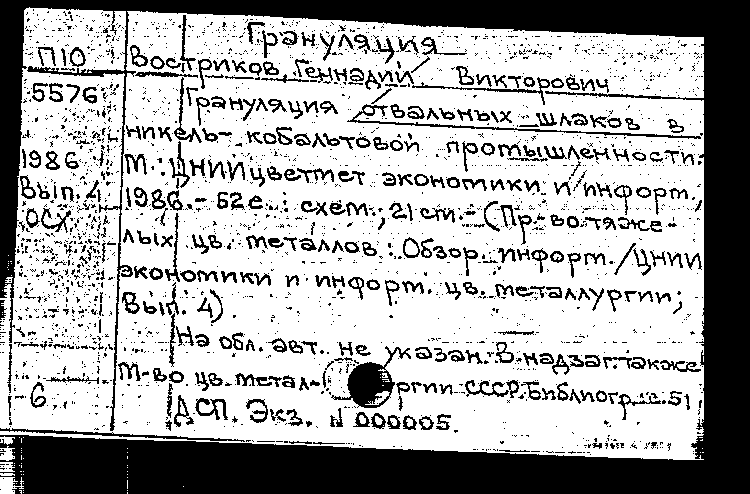 Грануляция
П10 Востриков, Геннадий Викторович
5576 Грануляция отвальных шлаков в
никель-кобальтовой промышленности.
1986 М.: ЦНИИцветмет экономики и информ.,
Вып. 4 1986.- 52 с.: схем.; 21 см.- (Пр-во тяже-
ОСХ лых цв. металлов: Обзор. информ./ЦНИИ
экономики и информ. цв. металлургии;
Вып. 4).
На обл. авт. не указан. В надзаг. также
М-во цв. метал- ургии СССР. Библиогр.: с. 51
6 ДСП. Экз. N 000005.